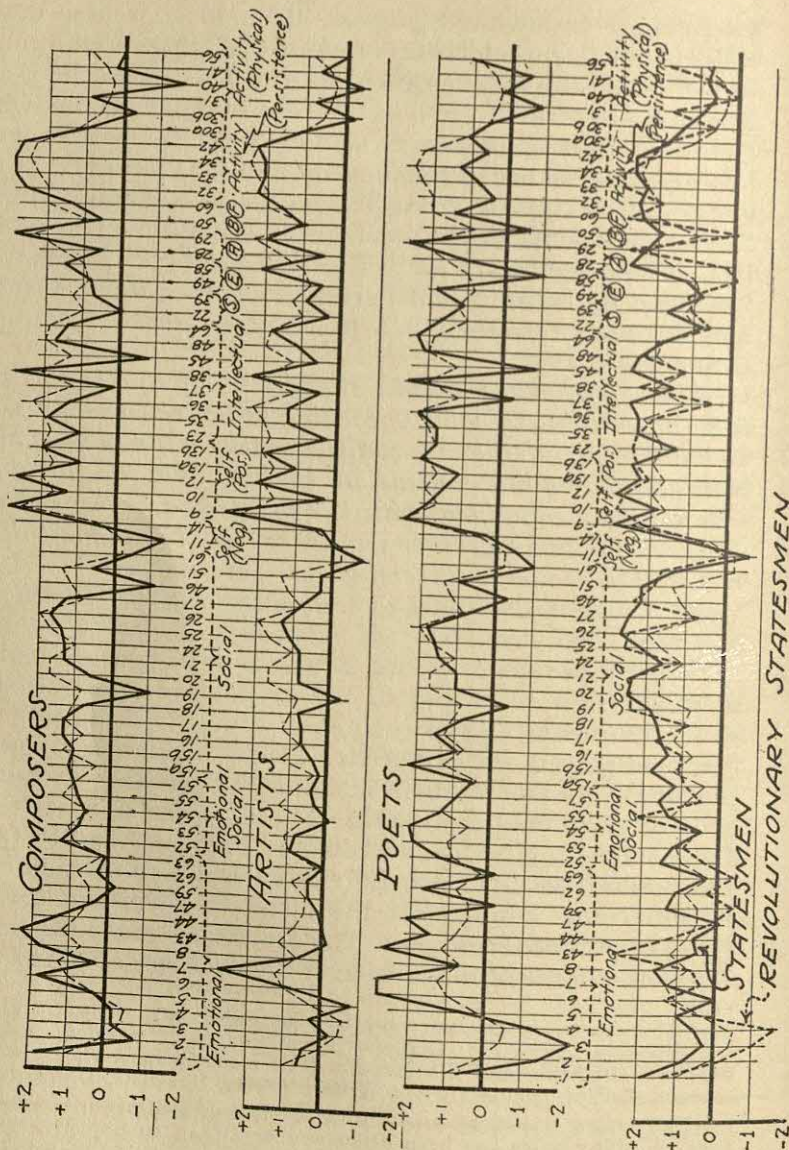 COMPOSERS
+2
+1
0
-1
-2
1 2 3 4 5 6 7 8 43 44 47 59 62 63 52 53 54 55 57 15a 15b 16 17 18 19 20 21 24 25 26 27 46 51 61 11 14 9 10 12 13a 13b 23 35 36 37 38 45 48 64 22 39 49 58 28 29 50 60 32 33 34 42 30a 30b 31 40 41 56
Emotional
Emotional Social
Social
Self (Neg)
Self (Pos.)
Intellectual
S E A B F
Activity
Activity (Physical)
(Persistence)
ARTISTS
+2
+1
0
-1
-2
POETS
+2
+1
0
-1
-2
1 2 3 4 5 6 7 8 43 44 47 59 62 63 52 53 54 55 57 15a 15b 16 17 18 19 20 21 24 25 26 27 46 51 61 11 14 9 10 12 13a 13b 23 35 36 37 38 45 48 64 22 39 49 58 28 29 50 60 32 33 34 42 30a 30b 31 40 41 56
Emotional
Emotional Social
Social
Self (Neg)
Self (Pos)
Intellectual
S E A B F
Activity
Activity (Physical)
(Persistence)
+2
+1
0
-1
-2
STATESMEN
REVOLUTIONARY STATESMEN